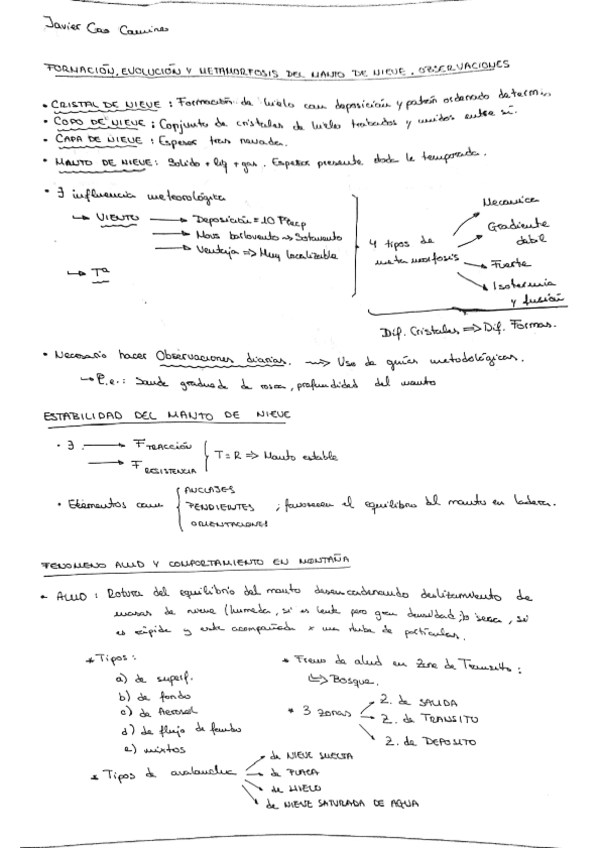 Javier Gao Camines
FORMACIÓN, EVOLUCIÓN Y METAMORFOSIS DEL MANTO DE NIEVE. OBSERVACIONES
• CRISTAL DE NIEVE : Formación de hielo con deposición y patrón ordenado determin
• COPO DE NIEVE : Conjunto de cristales de hielo trabados y unidos entre sí.
• CAPA DE NIEVE : Espesor tras nevada.
• MANTO DE NIEVE : Solido + liq + gas. Espesor presente toda la temporada.
• ∃ influencia meteorológica
↳ VIENTO → Deposición = 10 Precp
→ Mov barlovento → Sotavento
→ Ventaja ⇒ Muy localizable
↳ Tª
4 tipos de metamorfosis
Mecanica
Gradiente debil
Fuerte
Isotermia y fusión
Dif. Cristales ⇒ Dif. Formas.
• Necesario hacer Observaciones diarias. → Uso de guías metodológicas.
↳ P.e.: Sonde graduada de rosca, profundidad del manto
ESTABILIDAD DEL MANTO DE NIEVE
• ∃ → F TRACCIÓN
→ F RESISTENCIA
T = R ⇒ Manto estable
• Elementos como
ANCLAJES
PENDIENTES
ORIENTACIONES
; favorecen el equilibrio del manto en ladera.
FENOMENO ALUD Y COMPORTAMIENTO EN MONTAÑA
• ALUD : Rotura del equilibrio del manto desencadenando deslizamiento de
masas de nieve (humeda, si es lente pero gran densidad; o seca, si
es rápida y este acompañada x una nube de partículas.
* Tipos :
a) de superf.
b) de fondo
c) de Aerosol
d) de flujo de fondo
e) mixtos
* Freno de alud en Zona de Transito :
↳ Bosque.
* 3 zonas
Z. de SALIDA
Z. de TRANSITO
Z. de DEPOSITO
* Tipos de avalancha
de NIEVE SUELTA
de PLACA
de HIELO
de NIEVE SATURADA DE AGUA